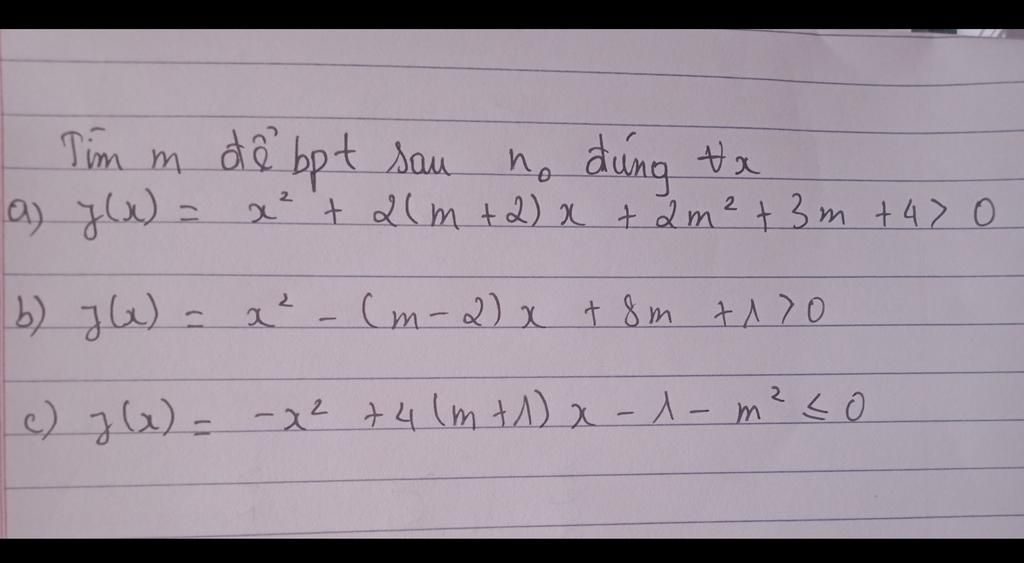 Tìm m để bpt sau n₀ đúng ∀x
a) f(x) = x² + 2(m + 2) x + 2m² + 3m + 4 > 0
b) f(x) = x² - (m - 2) x + 8m + 1 > 0
c) f(x) = -x² + 4 (m + 1) x - 1 - m² ≤ 0